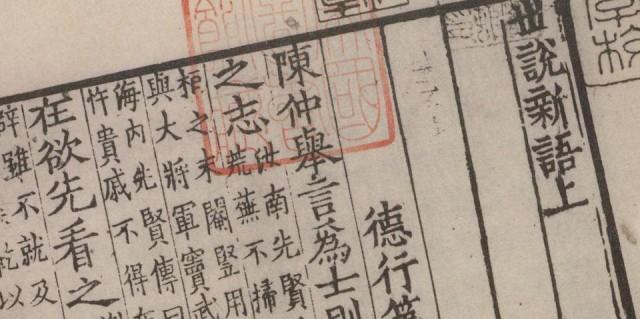 世說新語上
德行
陳仲舉言為士則
之志
汝南先賢
荒蕪不掃
桓之末閹豎用
與大將軍竇武
海內先賢傳曰
忤貴戚不得在
在欲先看之
就及
辟雖不
乾以